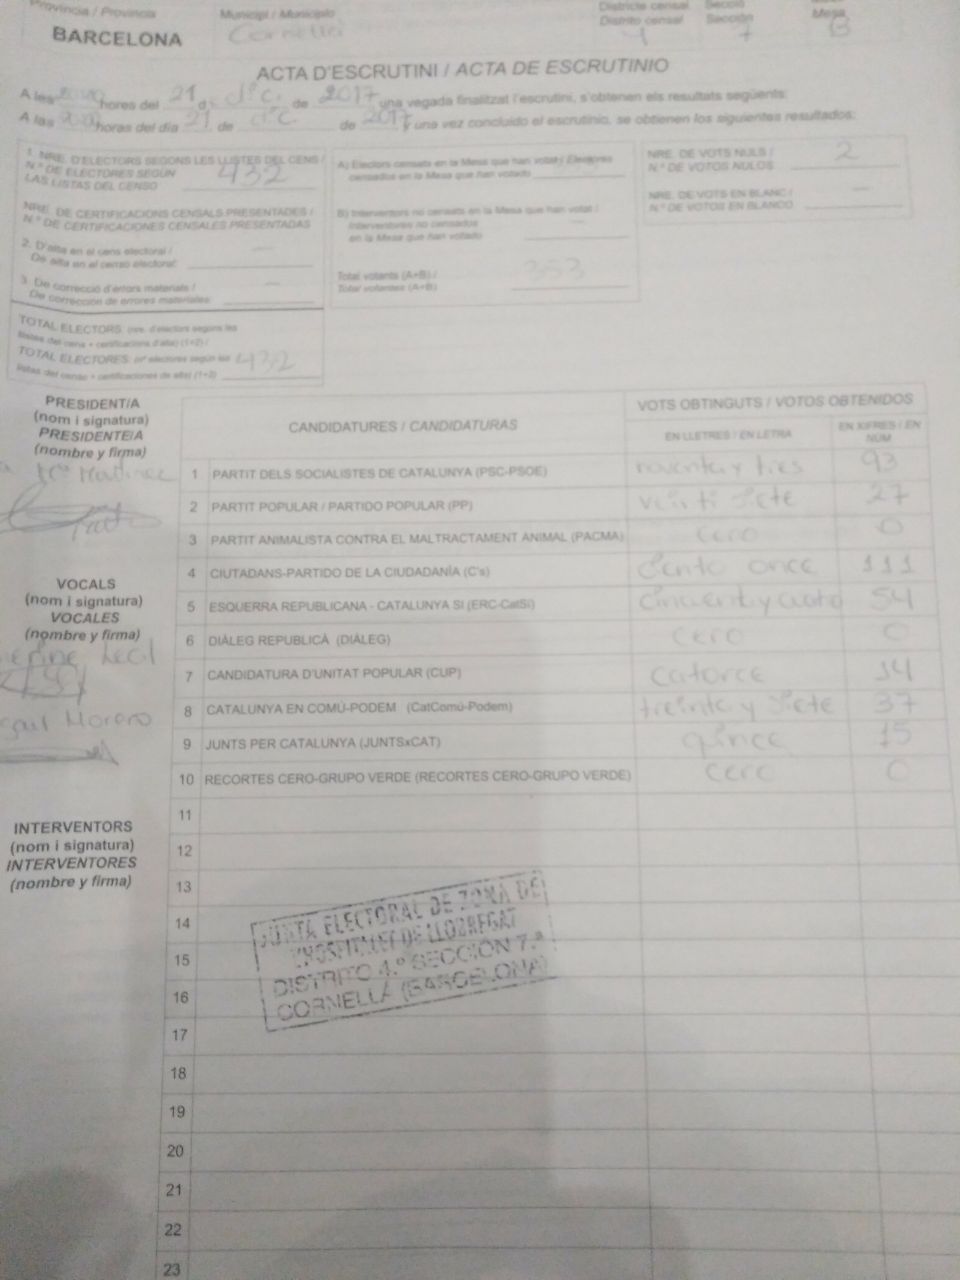 Província / Provincia
Municipi / Municipio
Districte censal
Distrito censal
Secció
Sección
Mesa
BARCELONA
Cornella
4
7
B
ACTA D'ESCRUTINI / ACTA DE ESCRUTINIO
A les hores del 21 d dic. de 2017 una vegada finalitzat l'escrutini, s'obtenen els resultats següents:
A las horas del día 21 de dic de 2017 y una vez concluido el escrutinio, se obtienen los siguientes resultados:
1. NRE. D'ELECTORS SEGONS LES LLISTES DEL CENS /
N.º DE ELECTORES SEGÚN
LAS LISTAS DEL CENSO 432
NRE. DE CERTIFICACIONS CENSALS PRESENTADES /
N.º DE CERTIFICACIONES CENSALES PRESENTADAS
2. D'alta en el cens electoral /
De alta en el censo electoral: —
3. De correcció d'errors materials /
De corrección de errores materiales: —
TOTAL ELECTORS: (nre. d'electors segons les
llistes del cens + certificacions d'alta) (1+2) /
TOTAL ELECTORES: (nº electores según las
listas del censo + certificaciones de alta) (1+2) 432
A) Electors censats en la Mesa que han votat / Electores
censados en la Mesa que han votado 353
B) Interventors no censats en la Mesa que han votat /
Interventores no censados
en la Mesa que han votado
Total votants (A+B) /
Total votantes (A+B) 353
NRE. DE VOTS NULS /
N.º DE VOTOS NULOS 2
NRE. DE VOTS EN BLANC /
N.º DE VOTOS EN BLANCO —
PRESIDENT/A
(nom i signatura)
PRESIDENTE/A
(nombre y firma)
VOCALS
(nom i signatura)
VOCALES
(nombre y firma)
Moreno
INTERVENTORS
(nom i signatura)
INTERVENTORES
(nombre y firma)
CANDIDATURES / CANDIDATURAS
VOTS OBTINGUTS / VOTOS OBTENIDOS
EN LLETRES / EN LETRA
EN XIFRES / EN
NÚM
1 PARTIT DELS SOCIALISTES DE CATALUNYA (PSC-PSOE) noventa y tres 93
2 PARTIT POPULAR / PARTIDO POPULAR (PP) veinti siete 27
3 PARTIT ANIMALISTA CONTRA EL MALTRACTAMENT ANIMAL (PACMA) cero 0
4 CIUTADANS-PARTIDO DE LA CIUDADANÍA (C's) ciento once 111
5 ESQUERRA REPUBLICANA - CATALUNYA SÍ (ERC-CatSí) 54
6 DIÀLEG REPUBLICÀ (DIÀLEG) cero 0
7 CANDIDATURA D'UNITAT POPULAR (CUP) catorce 14
8 CATALUNYA EN COMÚ-PODEM (CatComú-Podem) treinta y siete 37
9 JUNTS PER CATALUNYA (JUNTSxCAT) quince 15
10 RECORTES CERO-GRUPO VERDE (RECORTES CERO-GRUPO VERDE) cero 0
11
12
13
14
15
16
17
18
19
20
21
22
23
JUNTA ELECTORAL DE ZONA DE
L'HOSPITALET DE LLOBREGAT
DISTRITO 4.º SECCION 7.ª
CORNELLÁ (BARCELONA)